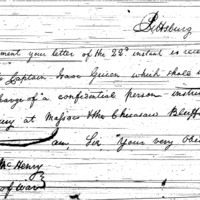 Pittsburg
ment your letter of the 22d instant is rece
Captain Isaac Guion which shall
charge of a confidential person instru
ry at Massac & the Chicasaw Bluff
am, Sir Your very Obe
McHenry
of War